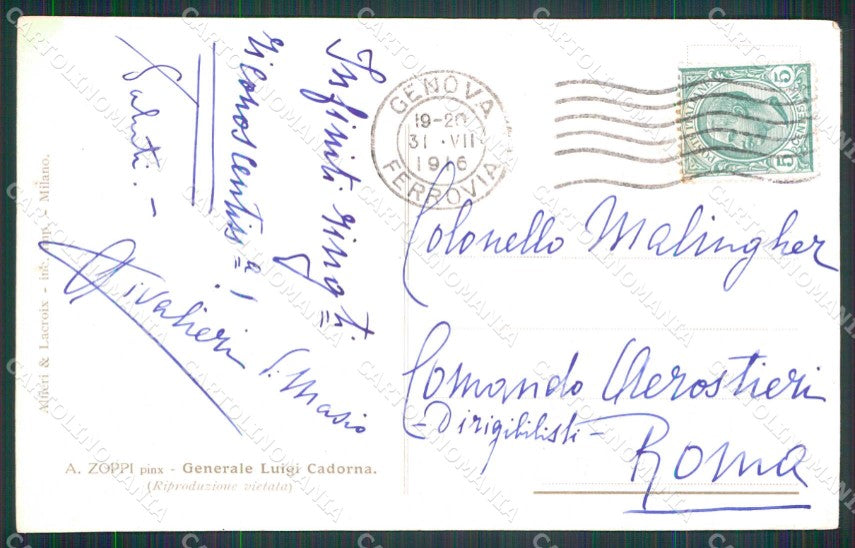 Infiniti ring.ti
riconoscentiss.i
Saluti. -
GENOVA
19-20
31 · VII
1916
FERROVIA
5
5
Colonello Malingher
Comando Aerostieri
- Dirigibilisti -
ROMA
Alfieri & Lacroix - Milano.
A. ZOPPI pinx - Generale Luigi Cadorna.
(Riproduzione vietata)
CARTOLINOMANIA